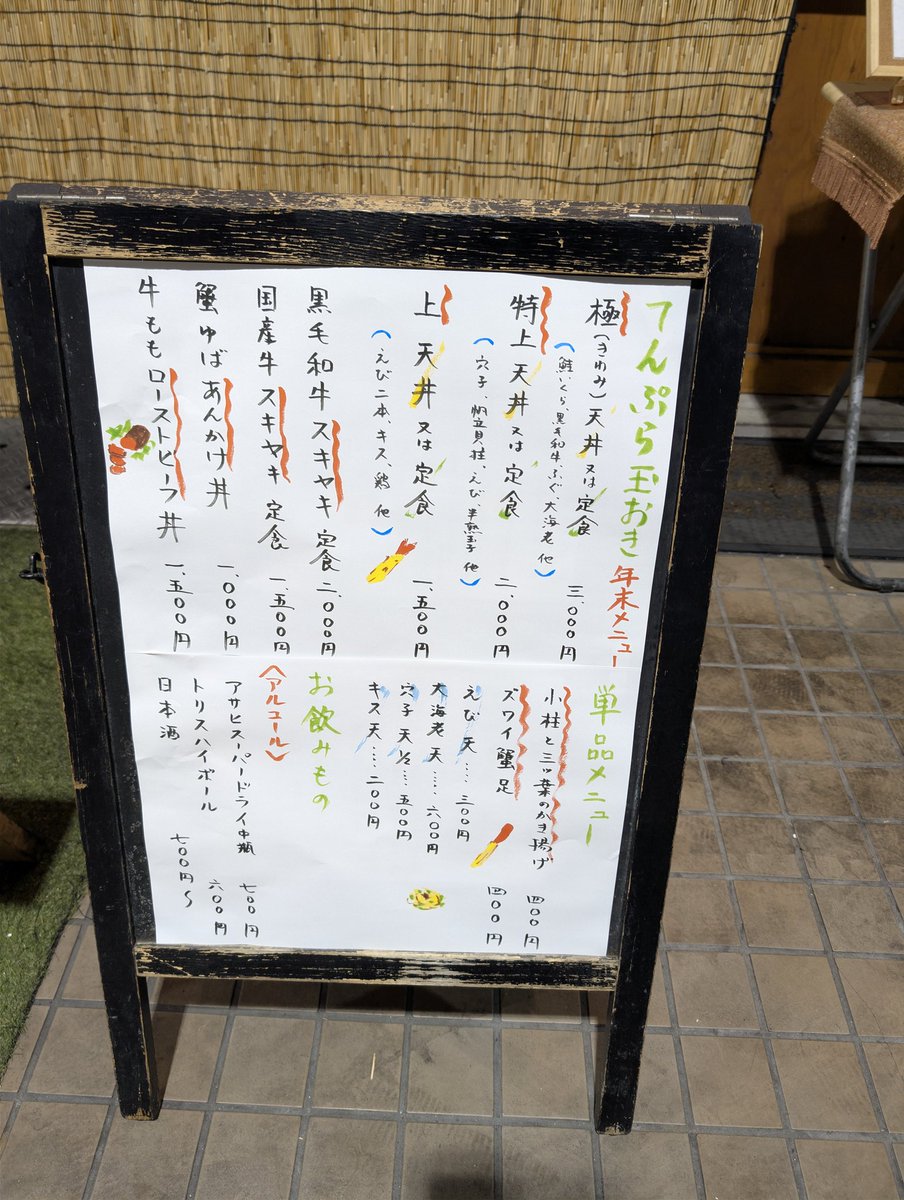 てんぷら玉おき 年末メニュー
極(きわみ)天丼又は定食 三、〇〇〇円
(鮭いくら、黒毛和牛、ふぐ、大海老 他)
特上天丼又は定食 二、〇〇〇円
(穴子、帆立貝柱、えび、半熟玉子 他)
上天丼又は定食 一、五〇〇円
(えび二本、キス、鶏 他)
黒毛和牛スキヤキ定食 二、〇〇〇円
国産牛スキヤキ定食 一、五〇〇円
蟹ゆばあんかけ丼 一、〇〇〇円
牛ももローストビーフ丼 一、五〇〇円
単品メニュー
小柱と三ッ葉のかき揚げ 四〇〇円
ズワイ蟹足 四〇〇円
えび天‥‥三〇〇円
大海老天‥‥六〇〇円
穴子天½‥‥五〇〇円
キス天‥‥二〇〇円
お飲みもの
〈アルコール〉
アサヒスーパードライ中瓶 七〇〇円
トリスハイボール 六〇〇円
日本酒 七〇〇円〜